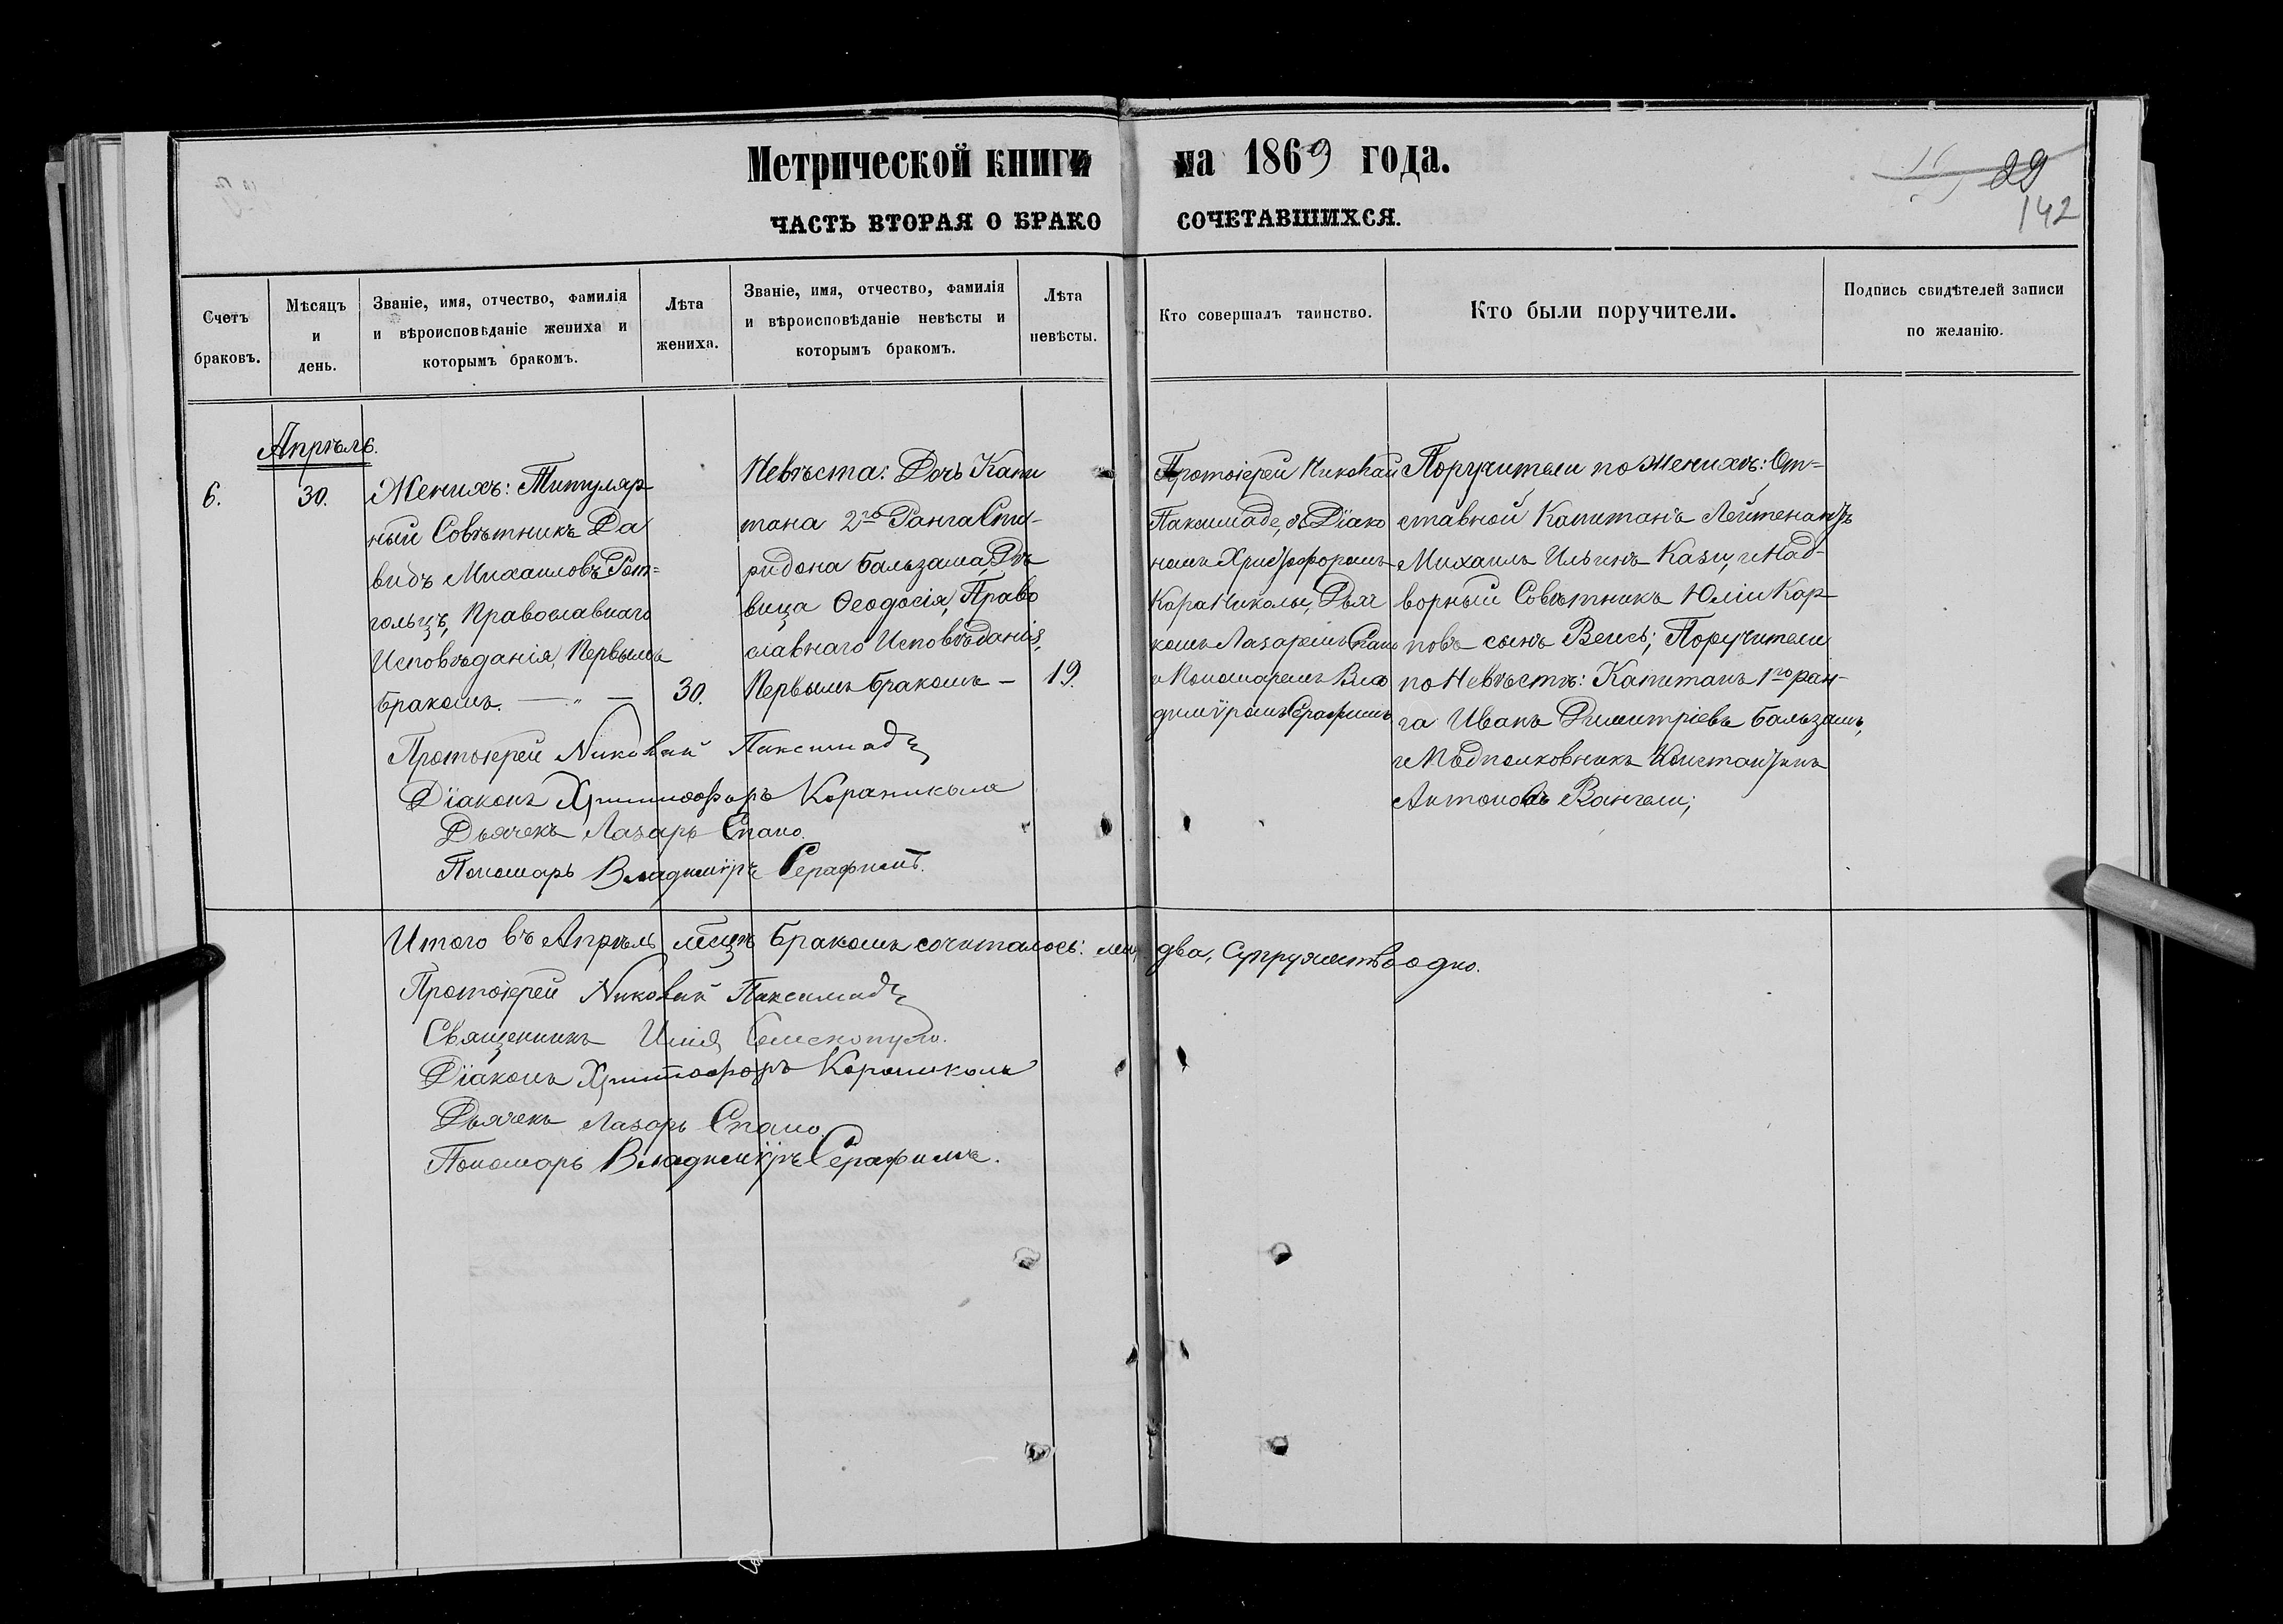 Метрической книги на 1869 года.
29
142
ЧАСТЬ ВТОРАЯ О БРАКОСОЧЕТАВШИХСЯ.
Счетъ
браковъ.
Мѣсяцъ
и
день.
Званіе, имя, отчество, фамилія
и вѣроисповѣданіе жениха и
которымъ бракомъ.
Лѣта
жениха.
Званіе, имя, отчество, фамилія
и вѣроисповѣданіе невѣсты и
которымъ бракомъ.
Лѣта
невѣсты.
Кто совершалъ таинство.
Кто были поручители.
Подпись свидѣтелей записи
по желанію.
Апрѣль.
6.
30.
Женихъ: Титуляр
ный Совѣтникъ Да
видъ Михаиловъ Рот=
гольцъ, Православнаго
Исповѣданія, Первымъ
бракомъ. — „ —
30.
Невѣста: Дочь Капи
тана 2го Ранга Спи-
ридона Бальзама, Дѣ
вица Ѳеодосія, Право
славнаго Исповѣданія,
Первымъ бракомъ —
19.
Протоіерей Николай
Паксимаде, съ Діако
номъ Христофоромъ
Кара Николы, Дьяч
комъ Лазаремъ Спано
и Пономаремъ Вла
димiромъ Серафимъ
Поручители по Женихѣ: От=
ставной Капитанъ Лейтенантъ
Михаилъ Ильинъ Кази, и Над-
ворный Совѣтникъ Юлій Кар-
повъ сынъ Вейсъ; Поручители
по Невѣстѣ: Капитанъ 1го ран-
га Иванъ Димитріевъ Бальзамъ,
и Подполковникъ Константинъ
Антоновъ Вангели;
Протоіерей Николай Паксимади
Діаконъ Христофоръ Караникола
Дьячекъ Лазарь Спано.
Пономарь Владимiръ Серафимъ.
Итого въ Апрѣль мѣсцѣ бракомъ сочиталось: два, Супружество одно.
Протоіерей Николай Паксимади
Священникъ Илія
Діаконъ Христофоръ Караникола
Дьячекъ Лазарь Спано.
Пономарь Владимiръ Серафимъ.